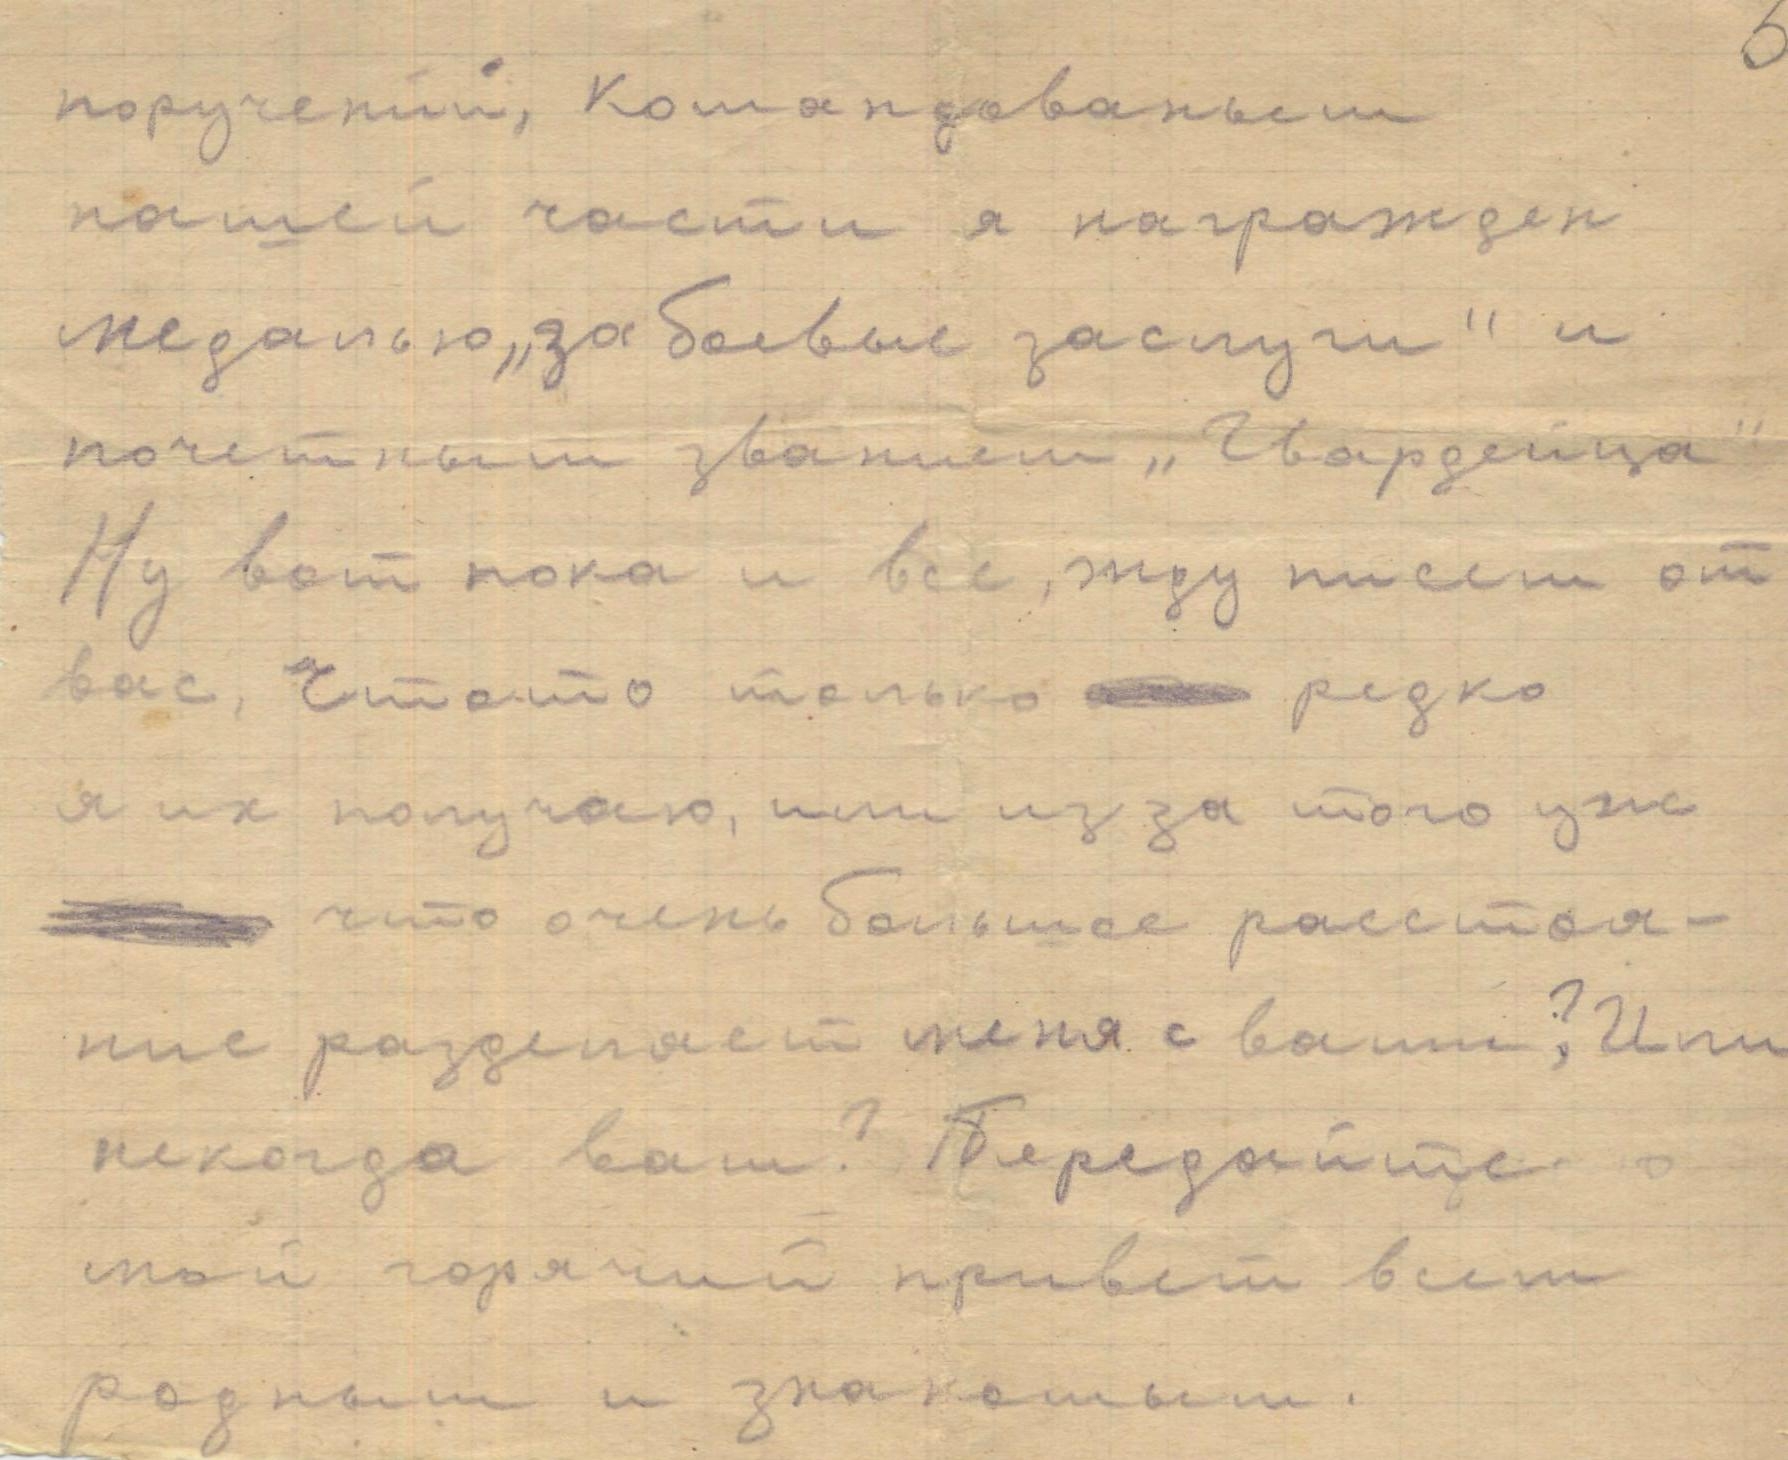 поручений, Командованьем
нашей части я награжден
медалью „за боевые заслуги" и
почетным званием „Гвардейца"
Ну вот пока и все, жду писем от
вас, Что то только редко
я их получаю, или из за того уж
что очень большое расстоя-
ние разделяет меня с вами? Или
некогда вам? Передайте
мой горячий привет всем
родным и знакомым.